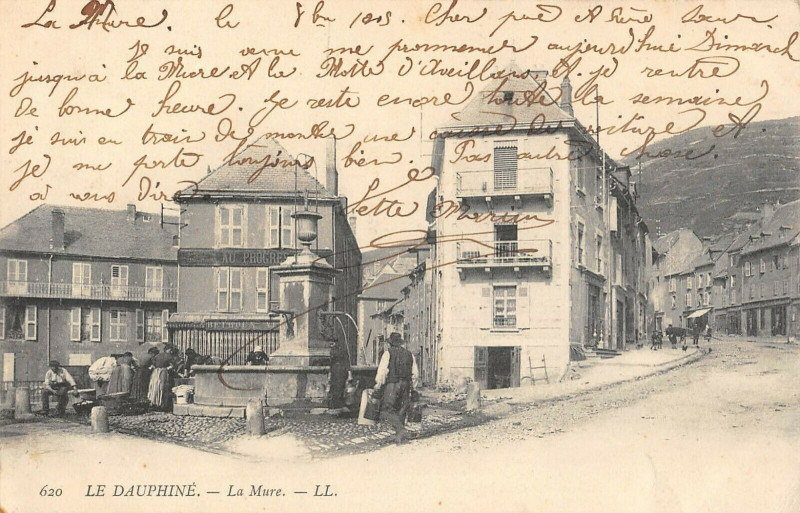 La Mure. le 8bre 1905. Cher père et chère sœur
Je suis venue me promener aujourd'hui Dimanche
jusqu'à la Mure et la Motte d'Aveillans et je rentre
de bonne heure. Je reste encore toute la semaine
je suis en train de monter une caisse de voiture et
je me porte toujours bien. Pas autre chose
à vous dire Martin
AU PROGRES
620 LE DAUPHINÉ. — La Mure. — LL.